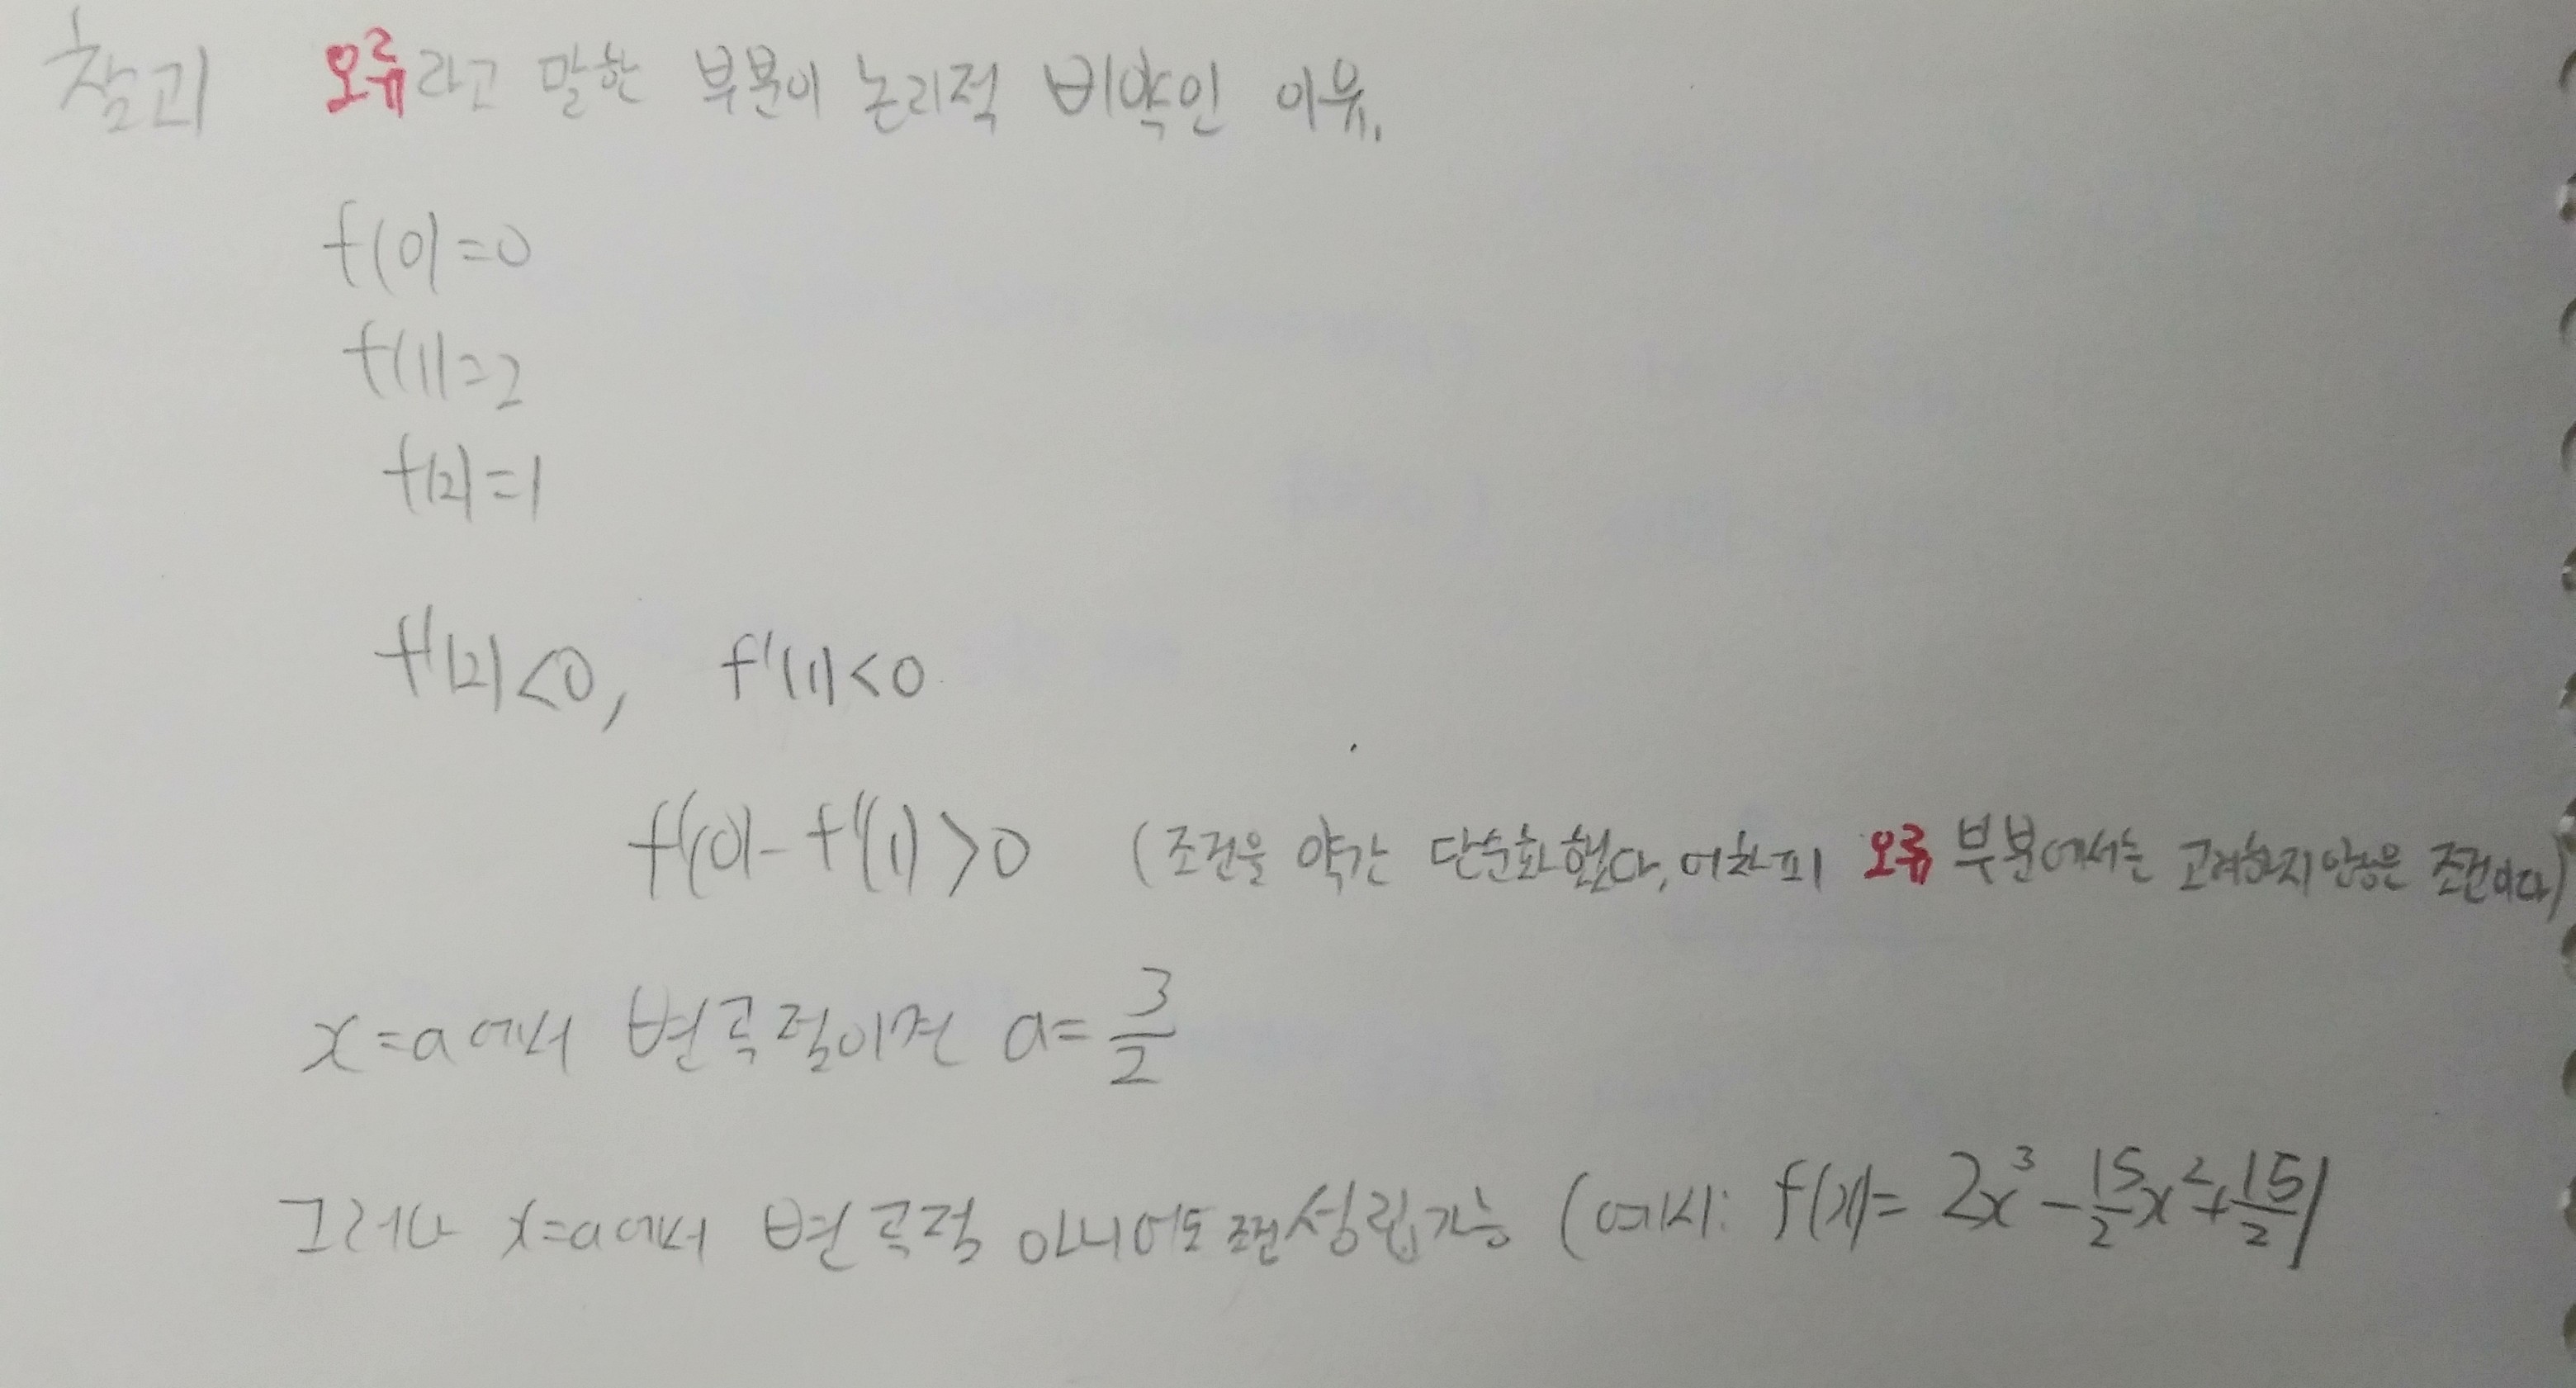 참고 오류라고 말한 부분이 논리적 비약인 이유.
f(0)=0
f(1)=2
f(2)=1
f'(2)<0, f'(1)<0
f'(0)-f'(1)>0 (조건을 약간 단순화했다, 어차피 오류 부분에서는 고려하지 않은 조건이다)
x=a에서 변곡점이면 a=3/2
그러나 x=a에서 변곡점 아니어도 조건 성립가능 (예시: f(x)=2x³-15/2x²+15/2)